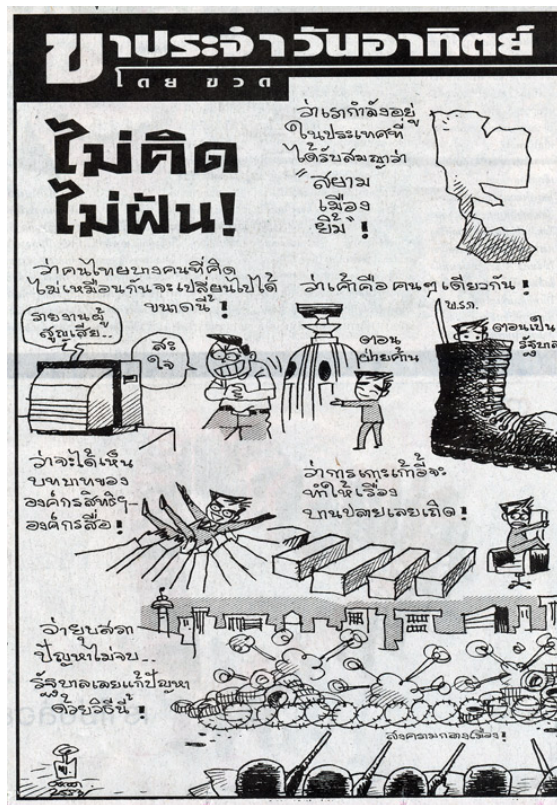 ขาประจำวันอาทิตย์
โดย ขวด
ไม่คิด
ไม่ฝัน!
ว่าเรากำลังอยู่
ในประเทศที่
ได้รับสมญาว่า
"สยาม
เมือง
ยิ้ม" !
ว่าคนไทยบางคนที่คิด
ไม่เหมือนกันจะเปลี่ยนไปได้
ขนาดนี้ !
รายงานผู้
สูญเสีย..
สะ
ใจ
ว่าเค้าคือคนๆเดียวกัน !
ตอน
ฝ่ายค้าน
พ.ร.ก.
ตอนเป็น
รัฐบาล
ว่าจะได้เห็น
บทบาทของ
องค์กรสิทธิฯ-
องค์กรสื่อ !
ว่าการเกาะเก้าอี้จะ
ทำให้เรื่อง
บานปลายเลยเถิด !
ว่ายุบสภา
ปัญหาไม่จบ..
รัฐบาลเลยแก้ปัญหา
ด้วยวิธีนี้ !
สงครามกลางเมือง !